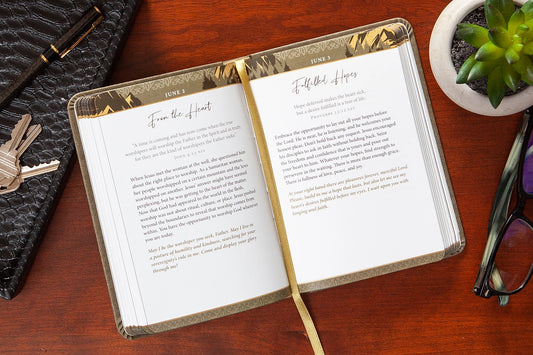 JUNE 2
From the Heart
"A time is coming and has now come when the true
worshipers will worship the Father in the Spirit and in truth,
for they are the kind of worshipers the Father seeks."
JOHN 4:23 NIV
When Jesus met the woman at the well, she questioned him
about the right place to worship. As a Samaritan woman,
her people worshipped on a certain mountain and the Jews
worshipped on another. Jesus' answer might have seemed
perplexing, but he was getting to the heart of the matter.
Now that God had appeared to the world in the flesh,
worship was not about ritual, culture, or place. Jesus pulled
beyond the boundaries to reveal that worship comes from
within. You have the opportunity to worship God wherever
you are today.
May I be the worshiper you seek, Father. May I live in
a posture of humility and kindness, searching for your
sovereignty's rule in me. Come and display your glory
through me!
JUNE 3
Fulfilled Hopes
Hope deferred makes the heart sick,
but a desire fulfilled is a tree of life.
PROVERBS 13:12
Embrace the opportunity to lay out all your hopes before
the Lord. He is near, he is listening, and he welcomes your
honest place. Don't hold back any request. Jesus encouraged
his disciples to ask in faith without holding back. Seize
the freedom and confidence that is yours and pour out
your heart to him. Whatever your hopes, find strength to
persevere in the waiting. There is more than enough grace.
There is fullness of love, peace, and joy.
At your right hand there are pleasures forever, merciful Lord.
Please, build in me a hope that lasts. But also let me see my
heart's desires fulfilled before my eyes. I wait upon you with
longing and faith.